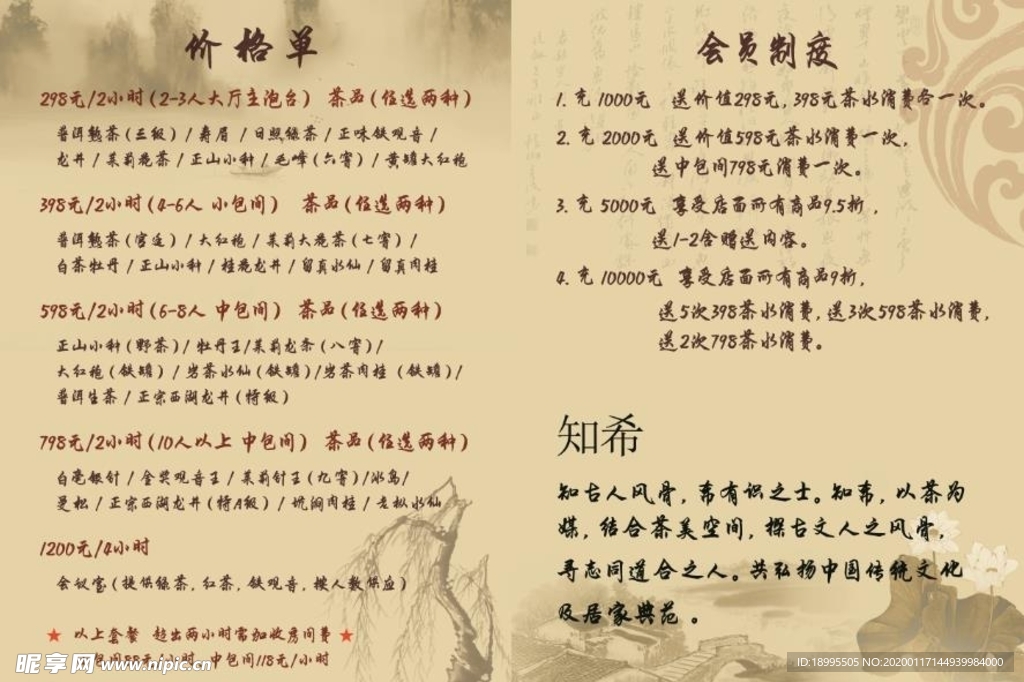 价格单
298元/2小时(2-3人大厅主泡台) 茶品(任选两种)
普洱熟茶(三级) / 寿眉 / 日照绿茶 / 正味铁观音 /
龙井 / 茉莉花茶 / 正山小种 / 毛峰(六窨) / 黄罐大红袍
398元/2小时(4-6人 小包间) 茶品(任选两种)
普洱熟茶(宫廷) / 大红袍 / 茉莉大花茶(七窨) /
白茶牡丹 / 正山小种 / 桂花龙井 / 留真水仙 / 留真肉桂
598元/2小时(6-8人 中包间) 茶品(任选两种)
正山小种(野茶) / 牡丹王/茉莉龙条(八窨)/
大红袍(铁罐) / 岩茶水仙(铁罐)/岩茶肉桂 (铁罐)/
普洱生茶 / 正宗西湖龙井(特级)
798元/2小时(10人以上 中包间) 茶品(任选两种)
白毫银针 / 金奖观音王 / 茉莉针王(九窨)/冰岛/
曼松 / 正宗西湖龙井(特A级) / 坑涧肉桂 / 老枞水仙
1200元/4小时
会议室(提供绿茶,红茶,铁观音,按人数供应)
★ 以上套餐 超出两小时需加收房间费 ★
包间88元/小时 中包间118元/小时
昵享网 www.nipic.cn
会员制度
1. 充 1000元 送价值298元,398元茶水消费各一次。
2. 充 2000元 送价值598元茶水消费一次,
送中包间798元消费一次。
3. 充 5000元 享受店面所有商品9.5折,
送1-2含赠送内容。
4. 充 10000元 享受店面所有商品9折,
送5次398茶水消费,送3次598茶水消费,
送2次798茶水消费。
知希
知古人风骨,希有识之士。知希,以茶为
媒,结合茶美空间,探古文人之风骨,
寻志同道合之人。共弘扬中国传统文化
及居家典范。
ID:18995505 NO:20200117144939984000